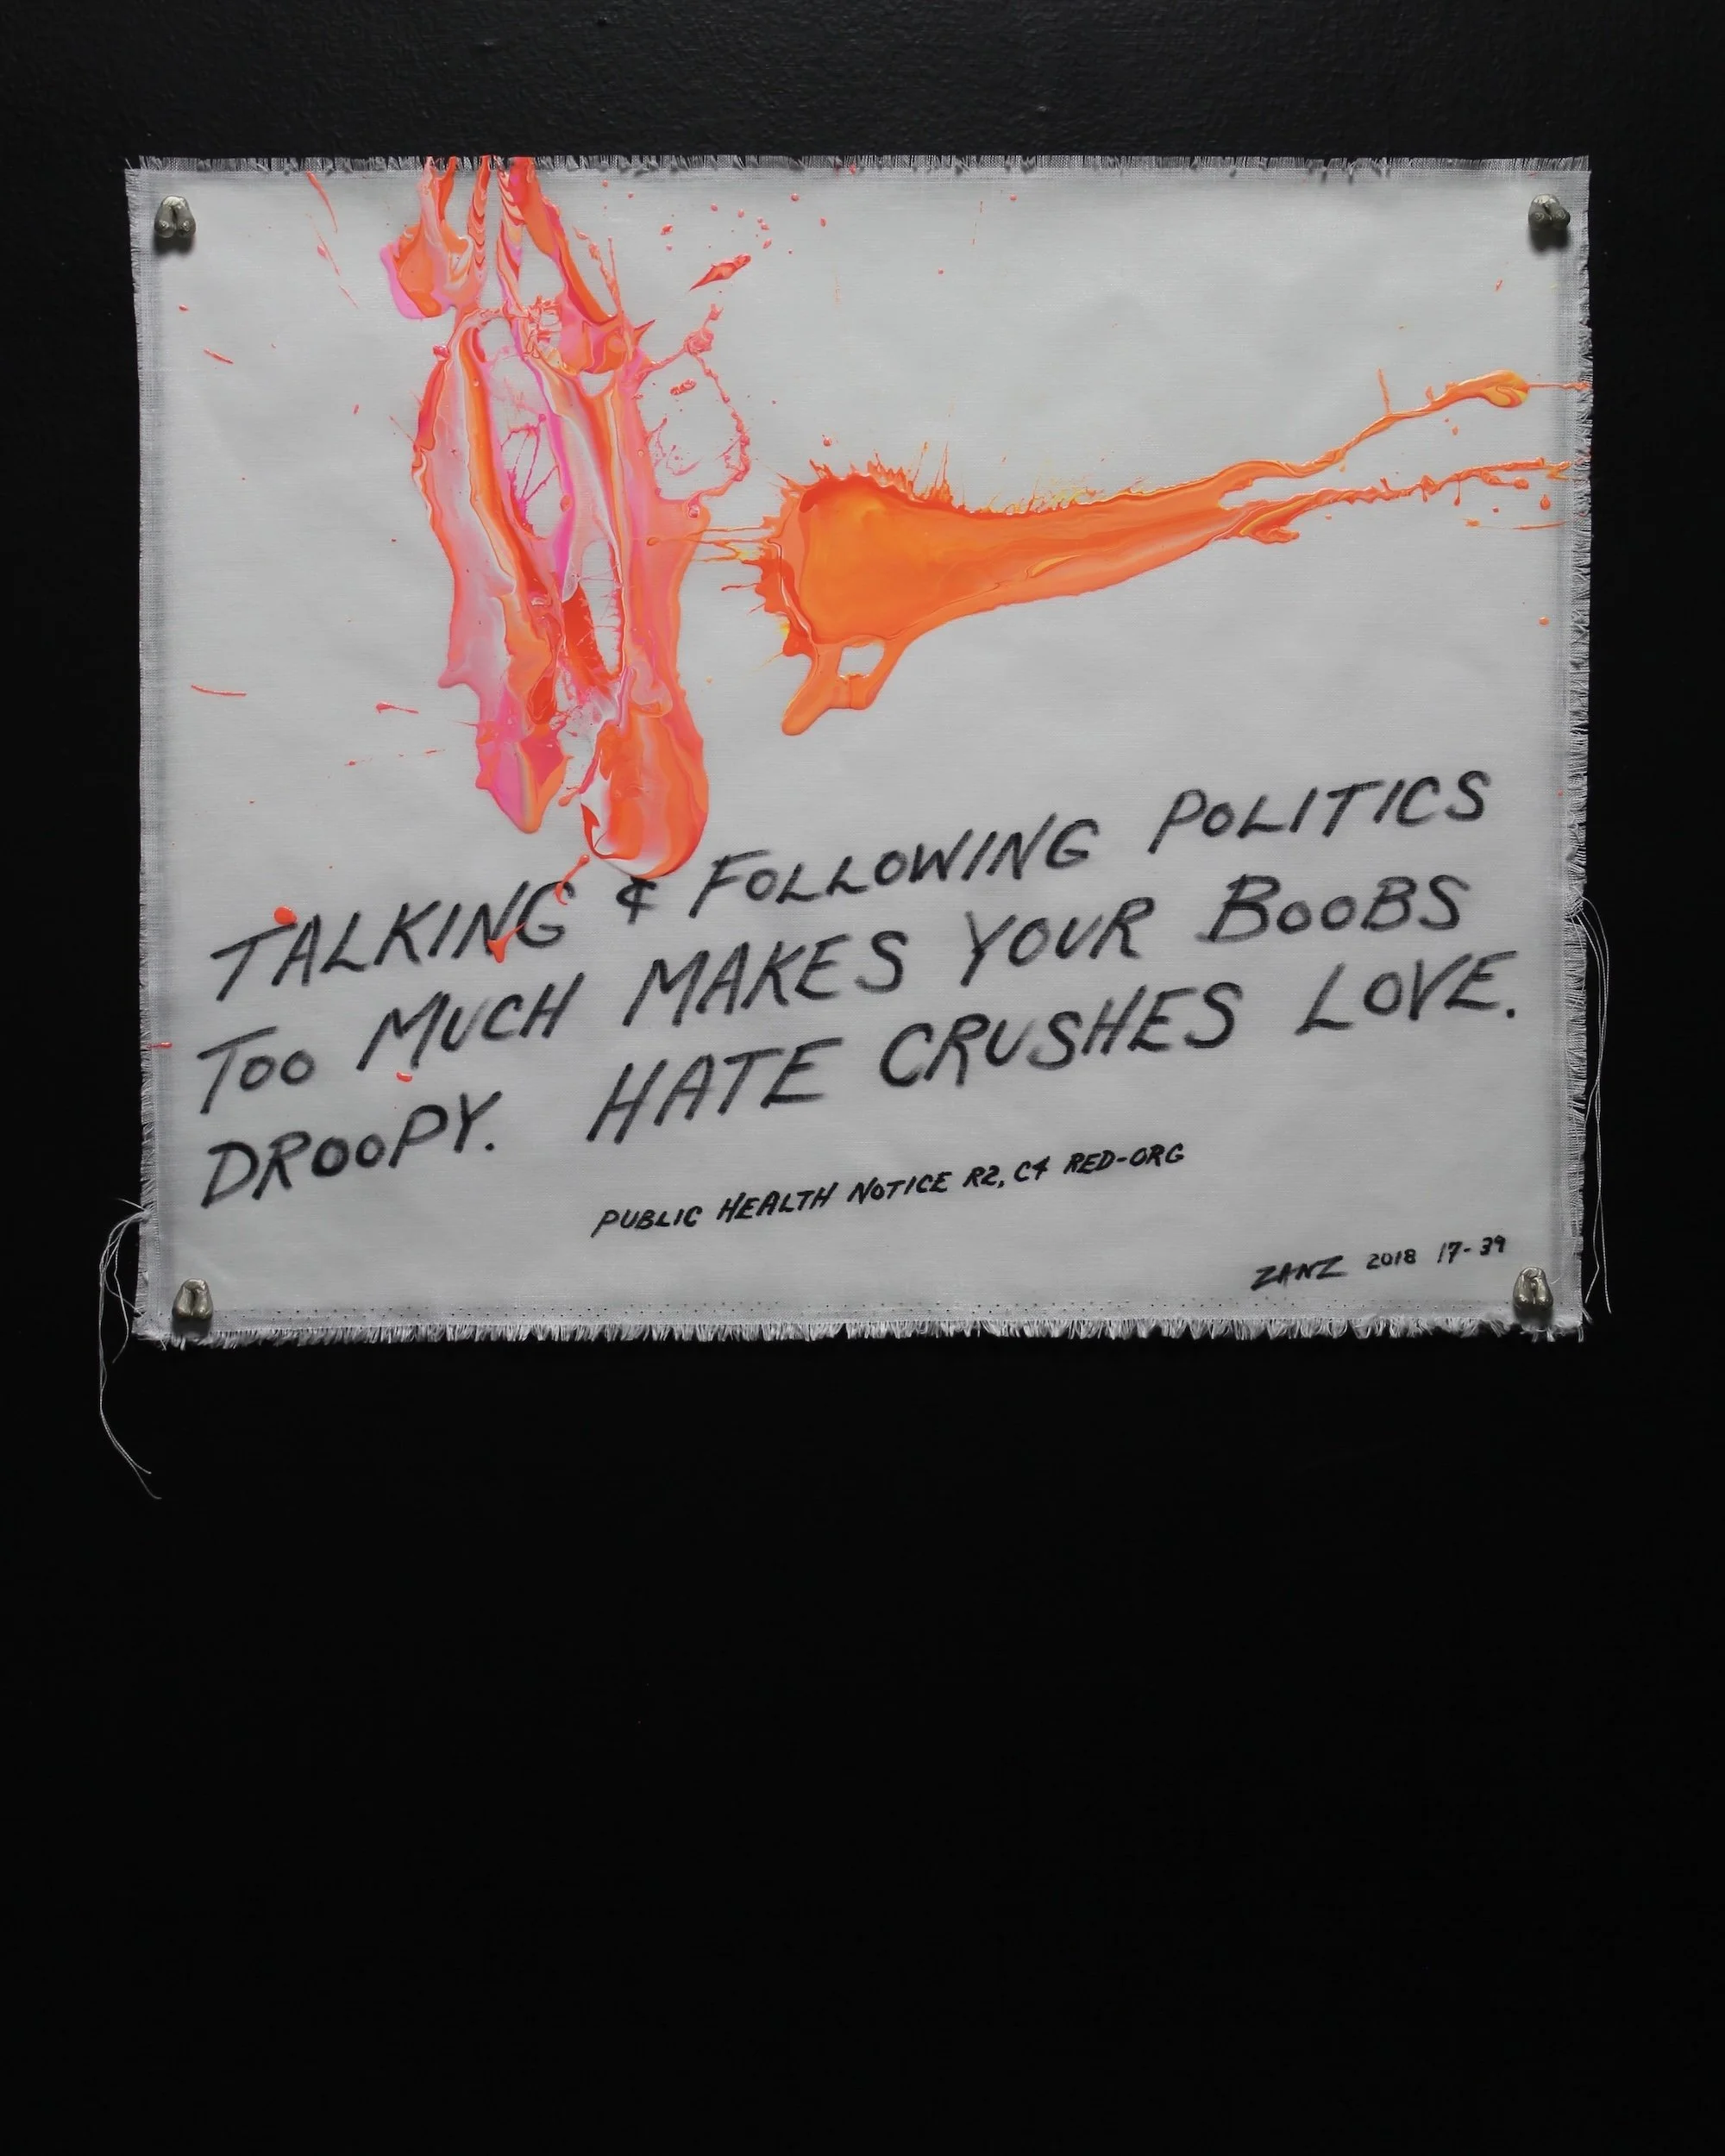 TALKING & FOLLOWING POLITICS
TOO MUCH MAKES YOUR BOOBS
DROOPY. HATE CRUSHES LOVE.
PUBLIC HEALTH NOTICE R2, C4 RED-ORG
ZANZ 2018 17-39